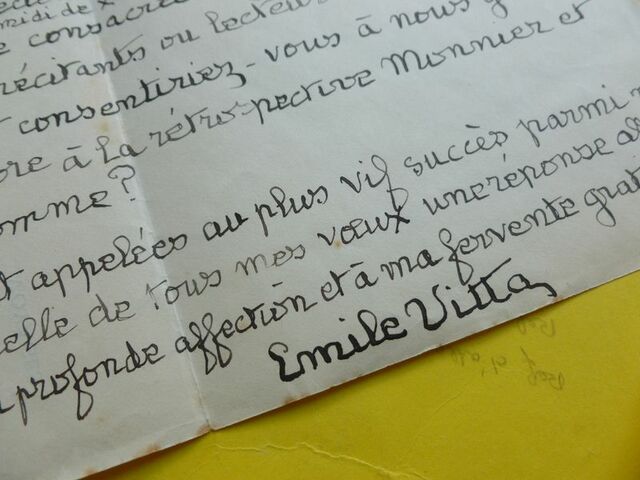 midi de
e consacre
récitants ou lecteurs
consentiriez-vous à nous
à la rétrospective Monnier et
omme?
t appelées au plus vif succès parmi
elle de tous mes vœux une réponse
profonde affection et à ma fervente grat
Emile Vitta